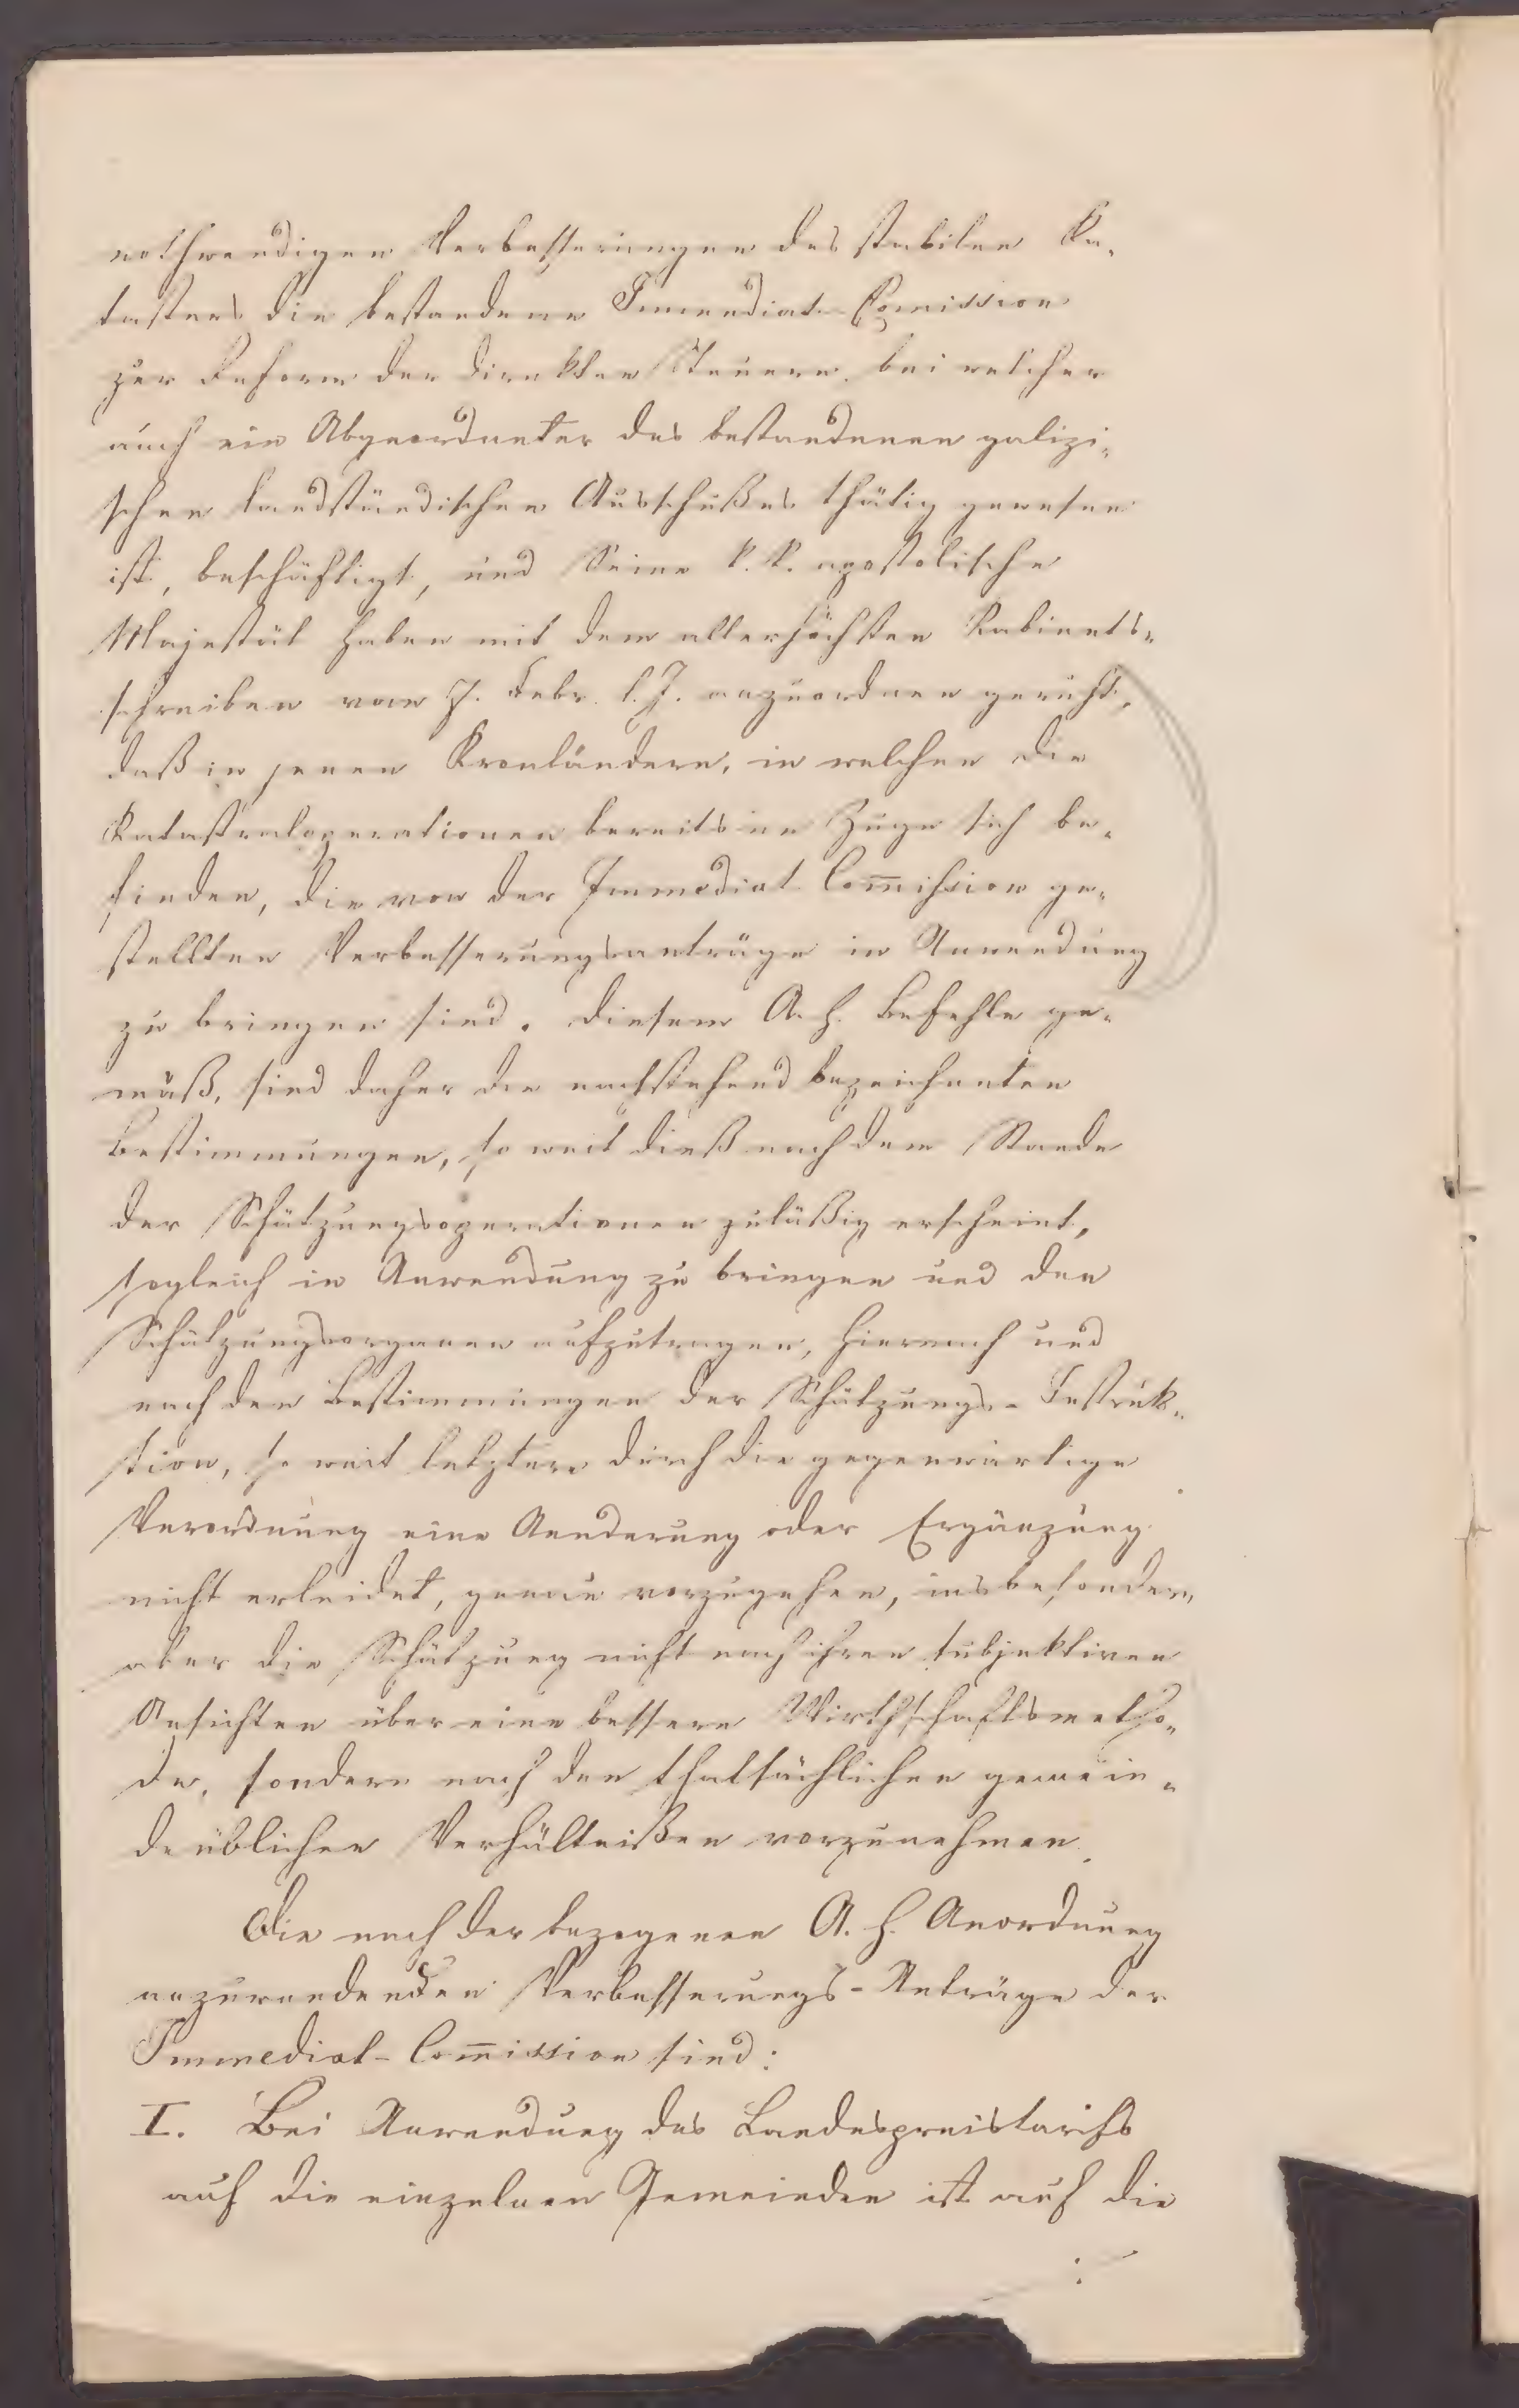 nothwendigen Verbesserungen des stabilen Ka-
tasters die bestandene Immediat-Comission
zur Reform der direkten Steuern, bei welcher
auch ein Abgeordneter des bestandenen galizi-
schen landständischen Ausschußes thätig gewesen
ist, beschäftigt, und Seine k. k. apostolische
Majestät haben mit dem allerhöchsten Kabinets-
schreiben vom 7. Febr. l. J. anzuordnen geruht,
daß in jenen Kronländern, in welchen die
Katastraloperationen bereits im Zuge sich be-
finden, die von der Immediat Com̅ission ge-
stellten Verbesserungsanträge in Anwendung
zu bringen sind. Diesem A. h. Befehle ge-
mäß, sind daher die nachstehend bezeichneten
Bestimmungen, so weit dieß nach dem Stande
der Schätzungsoperationen zuläßig erscheint,
sogleich in Anwendung zu bringen und den
Schätzungsorganen aufzutragen, hiernach und
nach den Bestimmungen der Schätzungs-Instruk-
tion, so weit letztere durch die gegenwärtige
Verordnung eine Aenderung oder Ergänzung
nicht erleidet, genau vorzugehen, insbesondere
aber die Schätzung nicht nach ihren subjektiven
Ansichten über eine bessere Wirthschaftsmetho-
de, sondern nach den thatsächlichen gemein-
deüblichen Verhältnißen vorzunehmen.
Die nach der bezogenen A. h. Anordnung
anzuwendenden Verbesserungs-Anträge der
Immediat-Com̅ission sind:
I. Bei Anwendung des Landespreistarifs
auf die einzelnen Gemeinden ist auf die